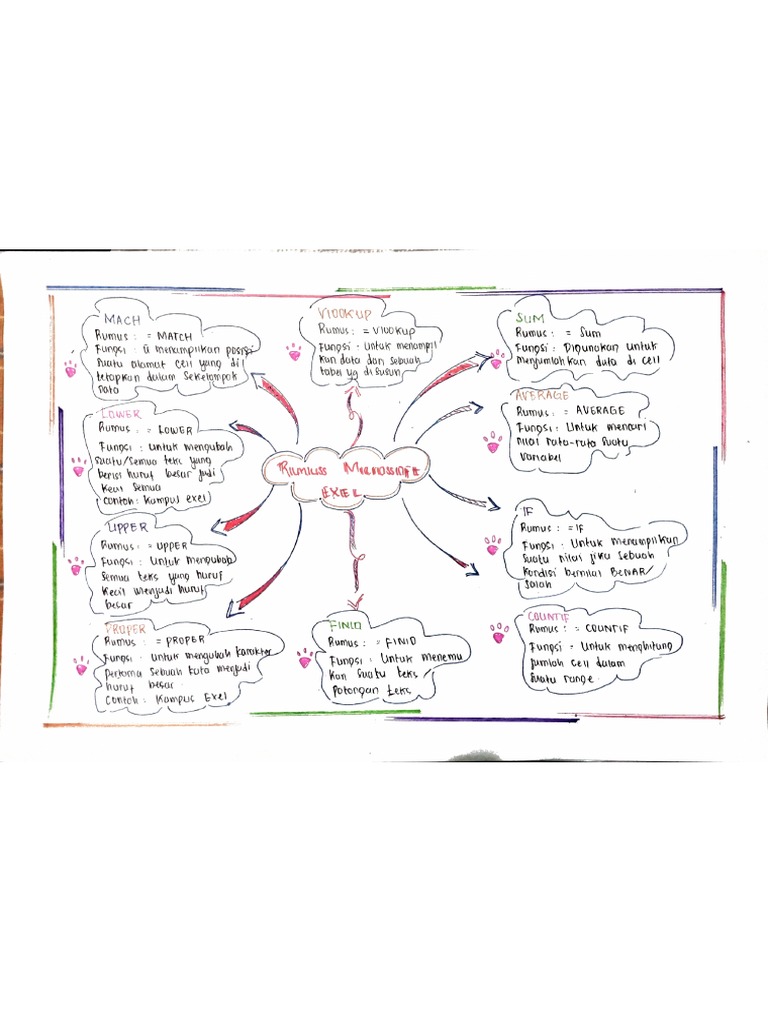 MACH
Rumus : = MATCH
Fungsi : U menampilkan posisi
suatu alamat cell yang di
tetapkan dalam sekelompok
Data
VlOOKUP
Rumus : = VlOOKUP
Fungsi : Untuk menampil
kan data dari sebuah
tabel yg di susun
SUM
Rumus : = Sum
Fungsi : Digunakan untuk
Menjumlahkan data di cell
LOWER
Rumus : = LOWER
Fungsi : Untuk mengubah
suatu/semua teks yang
berisi huruf besar jadi
kecil semua
Contoh : Kampus exel
AVERAGE
Rumus : = AVERAGE
Fungsi : Untuk mencari
nilai rata-rata suatu
variabel
RUMUSS
EXEL
UPPER
Rumus : = UPPER
Fungsi : Untuk mengubah
semua teks yang huruf
kecil menjadi huruf
besar
IF
Rumus : = IF
Fungsi : Untuk menampilkan
suatu nilai jika sebuah
kondisi bernilai BENAR/
Salah
PROPER
Rumus : = PROPER
Fungsi : Untuk mengubah karakter
pertama sebuah kata menjadi
huruf besar
Contoh : Kampus Exel
FIND
Rumus : = FIND
Fungsi : Untuk menemu
kan suatu teks/
Potongan teks
COUNTIF
Rumus : = COUNTIF
Fungsi = Untuk menghitung
jumlah cell dalam
suatu range